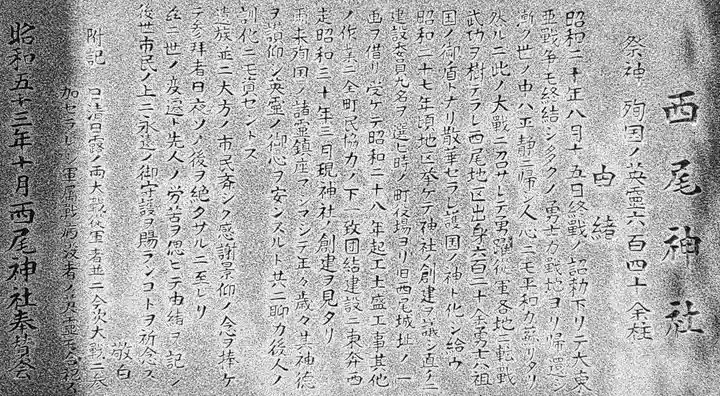 西尾神社
祭神 殉国ノ英霊六百四十余柱
由緒
昭和二十年八月十五日終戦ノ詔勅下リテ大東
亜戦争モ終結シ多クノ勇士方戦地ヨリ帰還シ
漸ク世ノ中ハ平静ニ帰シ人心ニモ平和カ蘇リタリ
然ルニ此ノ大戦ニ召サレテ勇躍従軍各地ニ転戦
武功ヲ樹テラレ西尾地区出身六百二十余勇士ハ祖
国ノ御盾トナリ散華セラレ護国ノ神ト化シ給ウ
昭和二十七年頃地区挙ケテ神社ノ創建ヲ議シ直チニ
建設委員 名ヲ選ヒ時ノ町役場ヨリ旧西尾城址ノ一
画ヲ借リ受ケテ昭和二十八年起工土盛工事其他
ノ作業ニ全町民協力ノ下一致団結建設ニ東奔西
走昭和三十年三月現神社ノ創建ヲ見タリ
爾来殉国ノ諸霊鎮座ランマシテ年々歳々其神徳
ヲ讃仰シ英霊ノ御心ヲ安ンスルト共ニ聊カ後人ノ
訓化ニモ資セントス
遺族並ニ大方ノ市民斉シク感謝景仰ノ念ヲ捧ケ
テ参拝者日夜ソノ後ヲ絶クサルニ至レリ
茲ニ世ノ変遷ト先人ノ労苦ヲ偲ヒテ由緒ヲ記シ
後世市民ノ上ニ永遠ノ御守護ヲ賜ランコトヲ祈念ス
敬白
附記 日清日露ノ両大戦従軍者並ニ今次大戦ニ参
加セラレシ軍属戦病没者ノ 霊 合祀ス
昭和五十三年十月西尾神社奉賛会